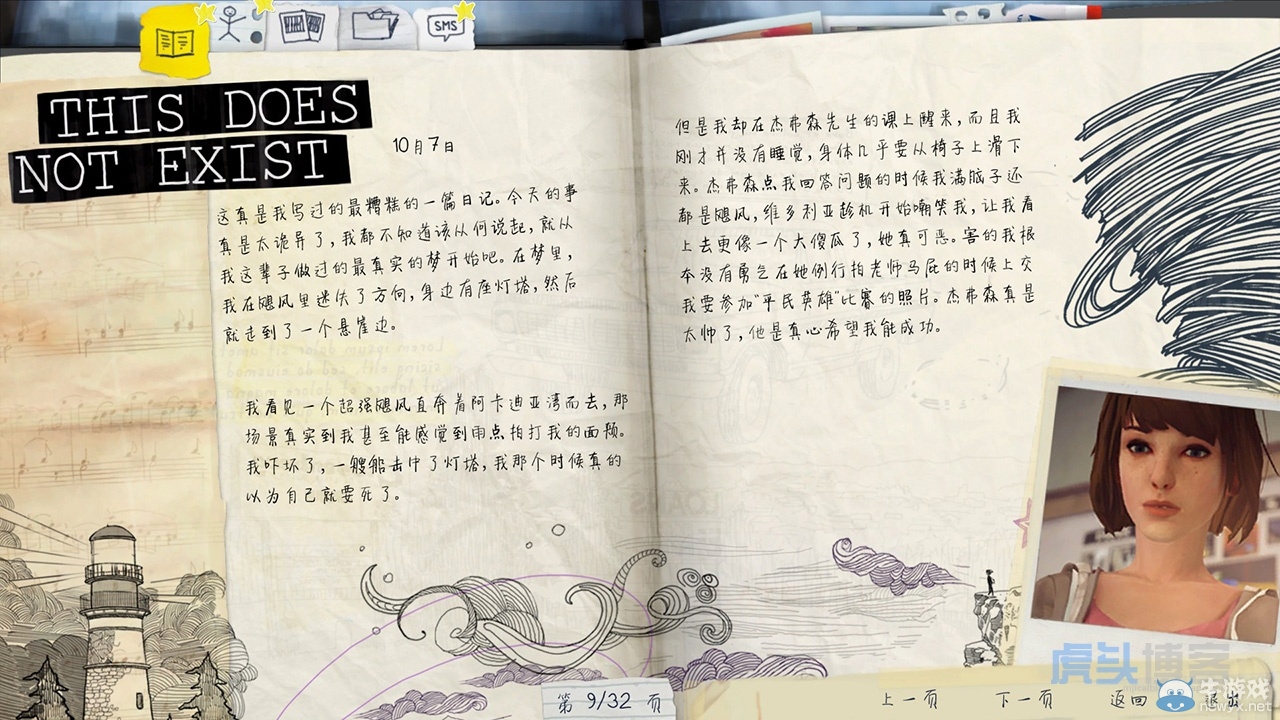 SMS
THIS DOES
NOT EXIST
10月7日
这真是我写过的最糟糕的一篇日记。今天的事
真是太诡异了，我都不知道该从何说起，就从
我这辈子做过的最真实的梦开始吧。在梦里，
我在飓风里迷失了方向，身边有座灯塔，然后
就走到了一个悬崖边。
我看见一个超强飓风直奔着阿卡迪亚湾而去，那
场景真实到我甚至能感觉到雨点拍打我的面颊。
我吓坏了，一艘船击中了灯塔，我那个时候真的
以为自己就要死了。
但是我却在杰弗森先生的课上醒来，而且我
刚才并没有睡觉，身体几乎要从椅子上滑下
来。杰弗森点我回答问题的时候我满脑子还
都是飓风，维多利亚趁机开始嘲笑我，让我看
上去更像一个大傻瓜了，她真可恶。害的我根
本没有勇气在她例行拍老师马屁的时候上交
我要参加“平民英雄”比赛的照片。杰弗森真是
太帅了，他是真心希望我能成功。
第 9/32 页
上一页 下一页 返回
虎头博客
牛游戏
newyx.net